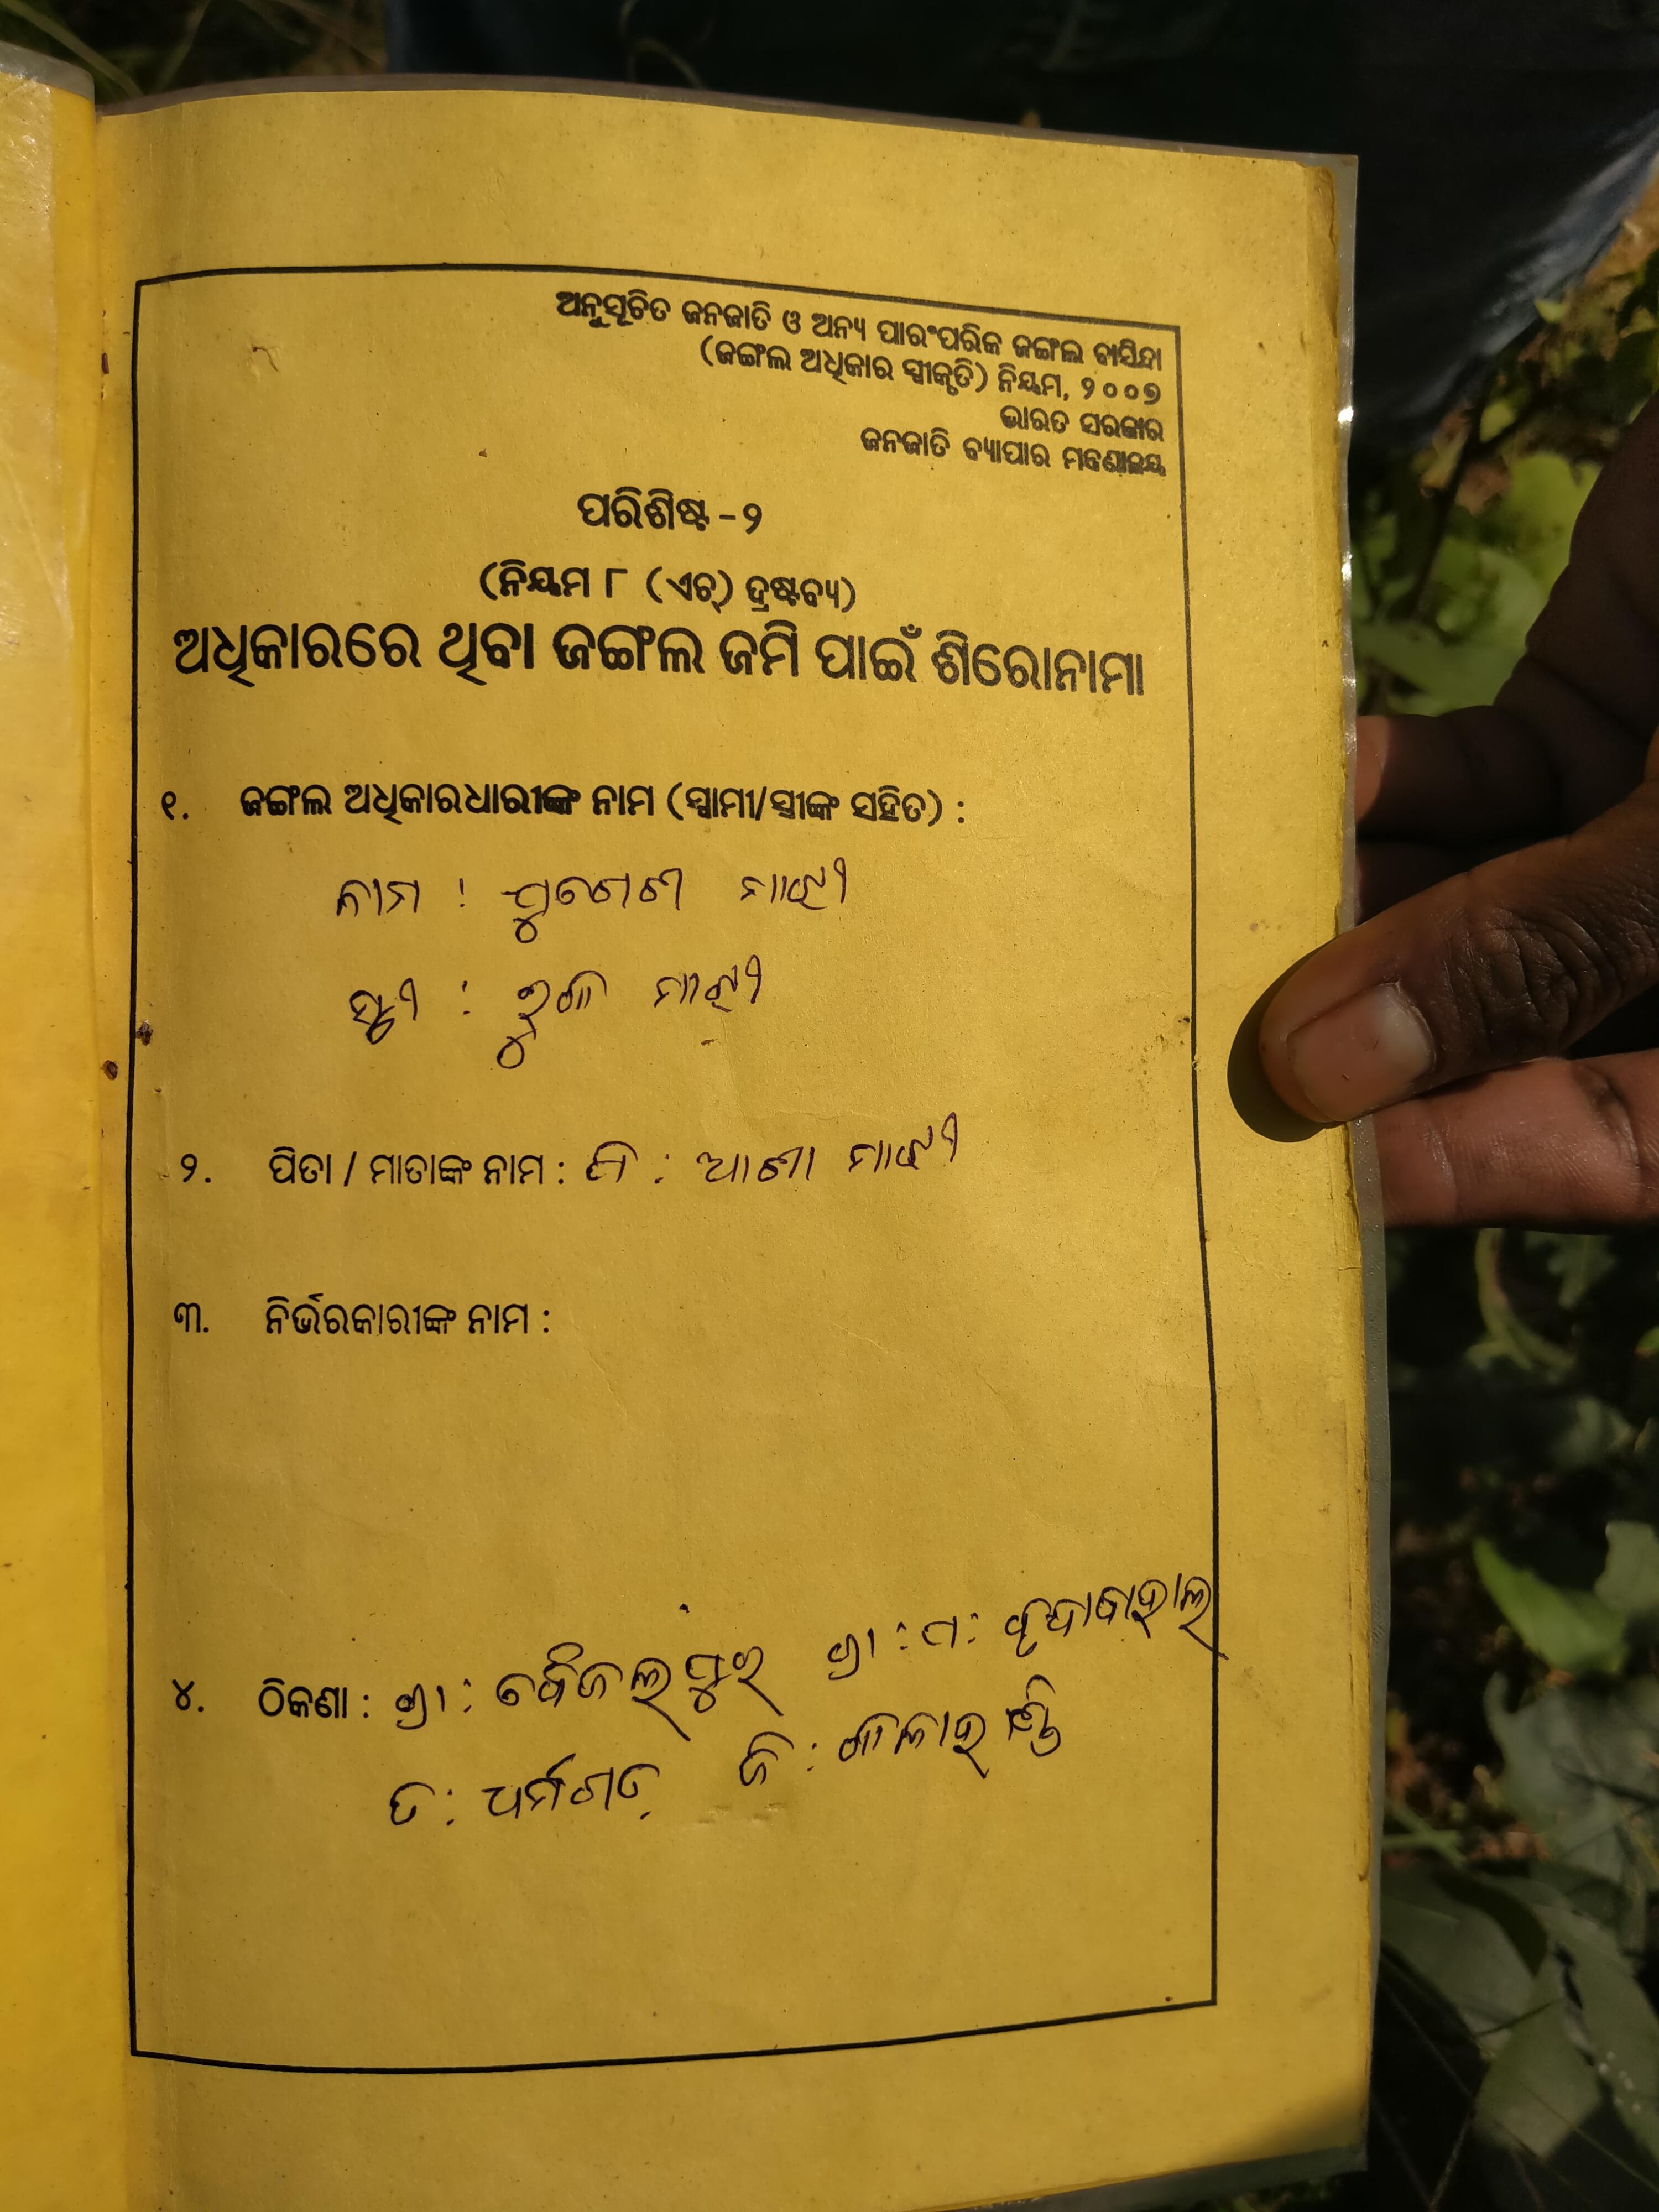 ଅନୁସୂଚିତ ଜନଜାତି ଓ ଅନ୍ୟ ପାରଂପରିକ ଜଙ୍ଗଲ ବାସିନ୍ଦା
(ଜଙ୍ଗଲ ଅଧିକାର ସ୍ୱୀକୃତି) ନିୟମ, ୨୦୦୭
ଭାରତ ସରକାର
ଜନଜାତି ବ୍ୟାପାର ମନ୍ତ୍ରଣାଳୟ
ପରିଶିଷ୍ଟ -୨
(ନିୟମ ୮ (ଏଚ୍) ଦ୍ରଷ୍ଟବ୍ୟ)
ଅଧିକାରରେ ଥିବା ଜଙ୍ଗଲ ଜମି ପାଇଁ ଶିରୋନାମା
୧. ଜଙ୍ଗଲ ଅଧିକାରଧାରୀଙ୍କ ନାମ (ସ୍ୱାମୀ/ସ୍ତ୍ରୀଙ୍କ ସହିତ) :
ନାମ : ମାଝୀ
ସ୍ତ୍ରୀ : ମାଝୀ
୨. ପିତା / ମାତାଙ୍କ ନାମ : ପି : ମାଝୀ
୩. ନିର୍ଭରକାରୀଙ୍କ ନାମ :
୪. ଠିକଣା : ଗ୍ରା : ଗ୍ରା : ପ :
ତ : ଧର୍ମଗଡ଼ ଜି : କଳାହାଣ୍ଡି